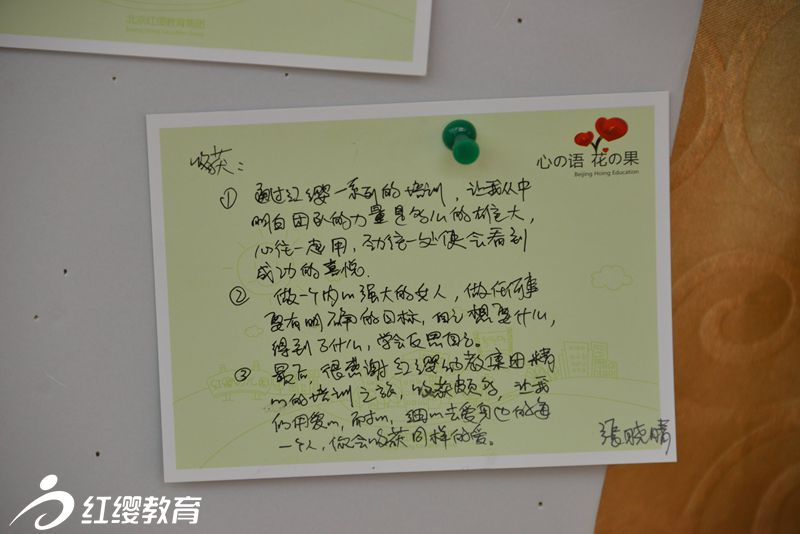 北京红缨教育集团
心の语 花の果
Beijing Hoing Education
收获：
① 通过红缨一系列的培训，让我从中
明白团队的力量是多么的雄大，
心往一起用，劲往一处使会看到
成功的喜悦.
② 做一个内心强大的女人，做任何事
要有明确的目标，自己想要什么，
得到了什么，学会反思自己。
③ 最后，很感谢红缨幼教集团精
心的培训之旅，收获颇多，让我
们用爱心，耐心，细心去爱身边的每
一个人，你会收获同样的爱。
张晓晴
红缨教育